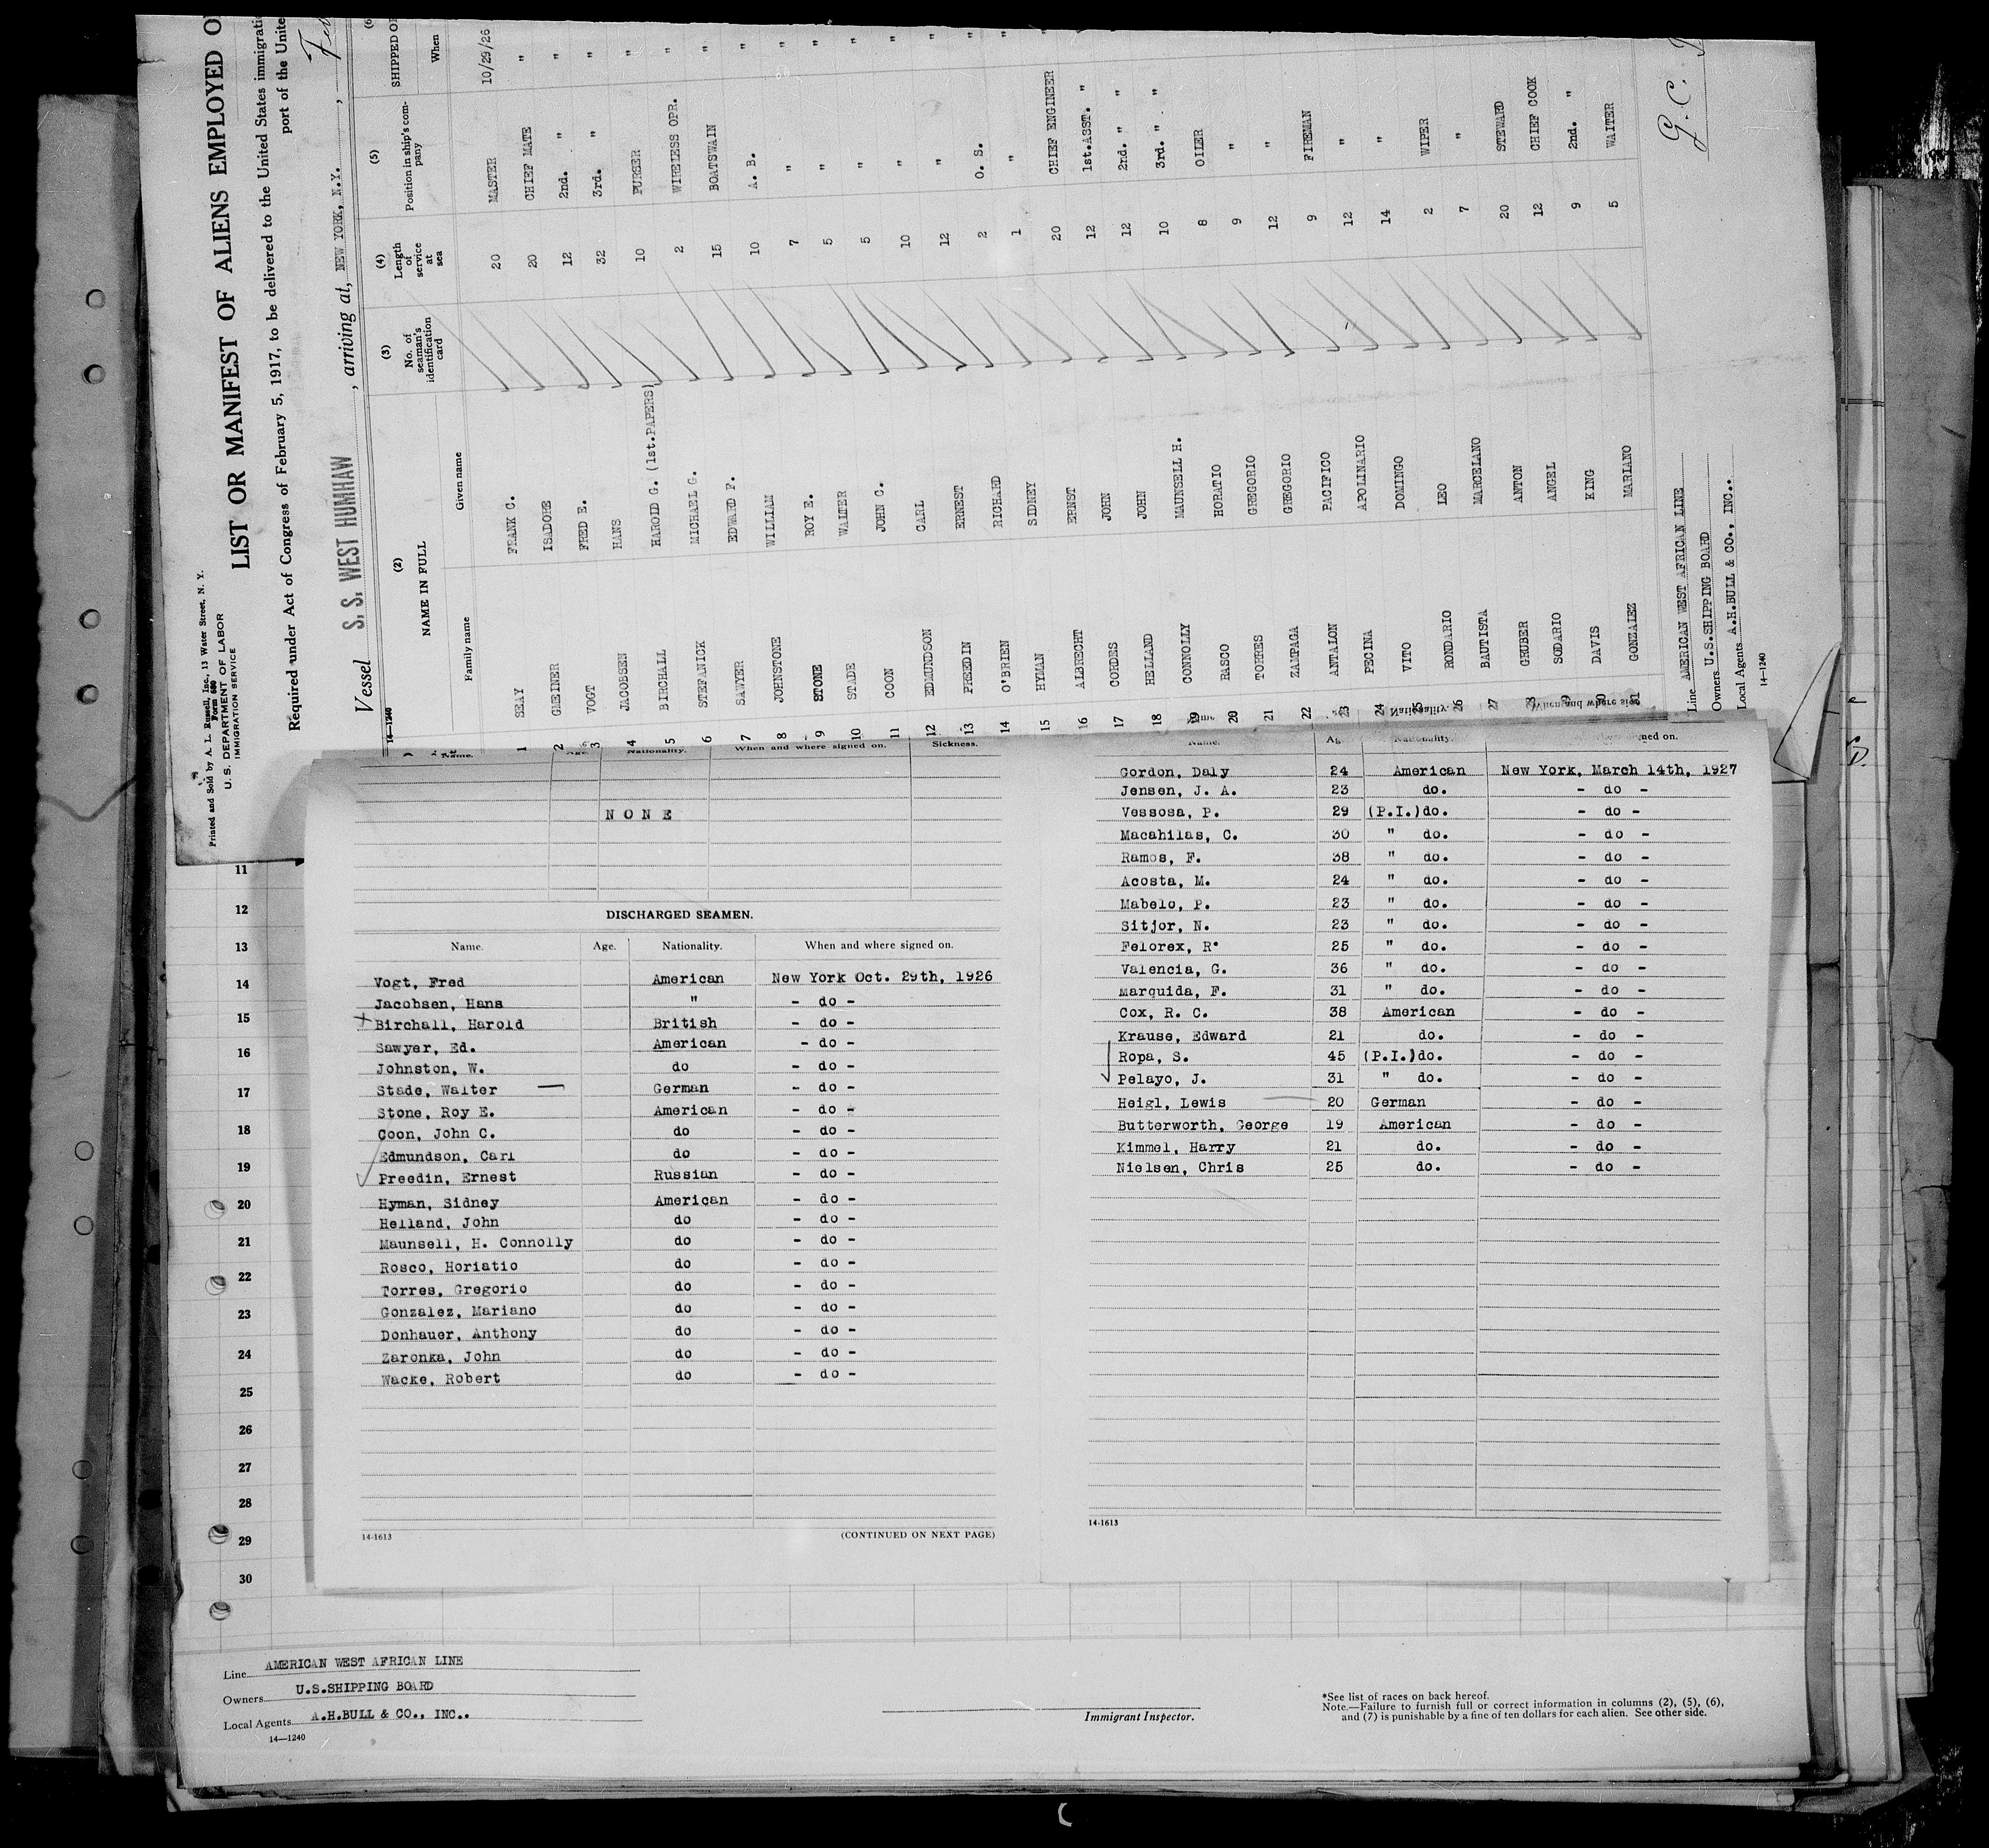 Printed and Sold by A. L. Russell, Inc., 13 Water Street, N. Y.
Form 680
U. S. DEPARTMENT OF LABOR
IMMIGRATION SERVICE
LIST OR MANIFEST OF ALIENS EMPLOYED O
Required under Act of Congress of February 5, 1917, to be delivered to the United States immigrati
port of the Unite
Vessel S. S. WEST HUMHAW, arriving at, NEW YORK, N.Y.,
14—1240
(2) (3) (4) (5) (6
NAME IN FULL No. of seaman's identification card Length of service at sea Position in ship's company SHIPPED O
Family name Given name When
1 SEAY FRANK C. 20 MASTER 10/29/26
2 GREINER ISADORE 20 CHIEF MATE "
3 VOGT FRED E. 12 2nd. " "
4 JACOBSEN HANS 32 3rd. " "
5 BIRCHALL HAROLD G. (1st.PAPERS) 10 PURSER "
6 STEFANICK MICHAEL G. 2 WIRELESS OPR. "
7 SAWYER EDWARD F. 15 BOATSWAIN "
8 JOHNSTONE WILLIAM 10 A. B. "
9 STONE ROY E. 7 " "
10 STADE WALTER 5 " "
11 COON JOHN C. 5 " "
12 EDMUNDSON CARL 10 " "
13 PREEDIN ERNEST 12 " "
14 O'BRIEN RICHARD 2 O. S. "
15 HYMAN SIDNEY 1 " "
16 ALBRECHT ERNST 20 CHIEF ENGINEER "
17 CORDES JOHN 12 1st.ASST. "
18 HELLAND JOHN 12 2nd. " "
19 CONNOLLY MAUNSELL H. 10 3rd. " "
20 RASCO HORATIO 8 OILER
21 TORRES GREGORIO 9 "
22 ZAMPAGA GREGORIO 12 "
23 ANTALON PACIFICO 9 FIREMAN
24 PECINA APOLINARIO 12 "
25 VITO DOMINGO 14 "
26 RONDARIO LEO 2 WIPER
27 BAUTISTA MARCELANO 7 "
28 GRUBER ANTON 20 STEWARD
29 SODARIO ANGEL 12 CHIEF COOK
30 DAVIS KING 9 2nd. "
31 GONZALEZ MARIANO 5 WAITER
Line AMERICAN WEST AFRICAN LINE
Owners U.S.SHIPPING BOARD
Local Agents A.H.BULL & CO., INC..
14—1240
Name. Age. Nationality. When and where signed on. Sickness.
NONE
DISCHARGED SEAMEN.
Name. Age. Nationality. When and where signed on.
Vogt, Fred American New York Oct. 29th, 1926
Jacobsen, Hans " - do -
Birchall, Harold British - do -
Sawyer, Ed. American - do -
Johnston, W. do - do -
Stade, Walter German - do -
Stone, Roy E. American - do -
Coon, John C. do - do -
Edmundson, Carl do - do -
Preedin, Ernest Russian - do -
Hyman, Sidney American - do -
Helland, John do - do -
Maunsell, H. Connolly do - do -
Rosco, Horiatio do - do -
Torres, Gregorio do - do -
Gonzalez, Mariano do - do -
Donhauer, Anthony do - do -
Zaronka, John do - do -
Wacke, Robert do - do -
14-1613 (CONTINUED ON NEXT PAGE)
Name. Nationality. ned on.
Gordon, Daly 24 American New York, March 14th, 1927
Jensen, J. A. 23 do. - do -
Vessosa, P. 29 (P.I.)do. - do -
Macahilas, C. 30 " do. - do -
Ramos, F. 38 " do. - do -
Acosta, M. 24 " do. - do -
Mabelo, P. 23 " do. - do -
Sitjor, N. 23 " do. - do -
Felorex, R. 25 " do. - do -
Valencia, G. 36 " do. - do -
Marquida, F. 31 " do. - do -
Cox, R. C. 38 American - do -
Krause, Edward 21 do. - do -
Ropa, S. 45 (P.I.)do. - do -
Pelayo, J. 31 " do. - do -
Heigl, Lewis 20 German - do -
Butterworth, George 19 American - do -
Kimmel, Harry 21 do. - do -
Nielsen, Chris 25 do. - do -
14-1613
11
12
13
14
15
16
17
18
19
20
21
22
23
24
25
26
27
28
29
30
Line AMERICAN WEST AFRICAN LINE
Owners U.S.SHIPPING BOARD
Local Agents A.H.BULL & CO., INC..
14—1240
Immigrant Inspector.
*See list of races on back hereof.
Note.—Failure to furnish full or correct information in columns (2), (5), (6),
and (7) is punishable by a fine of ten dollars for each alien. See other side.